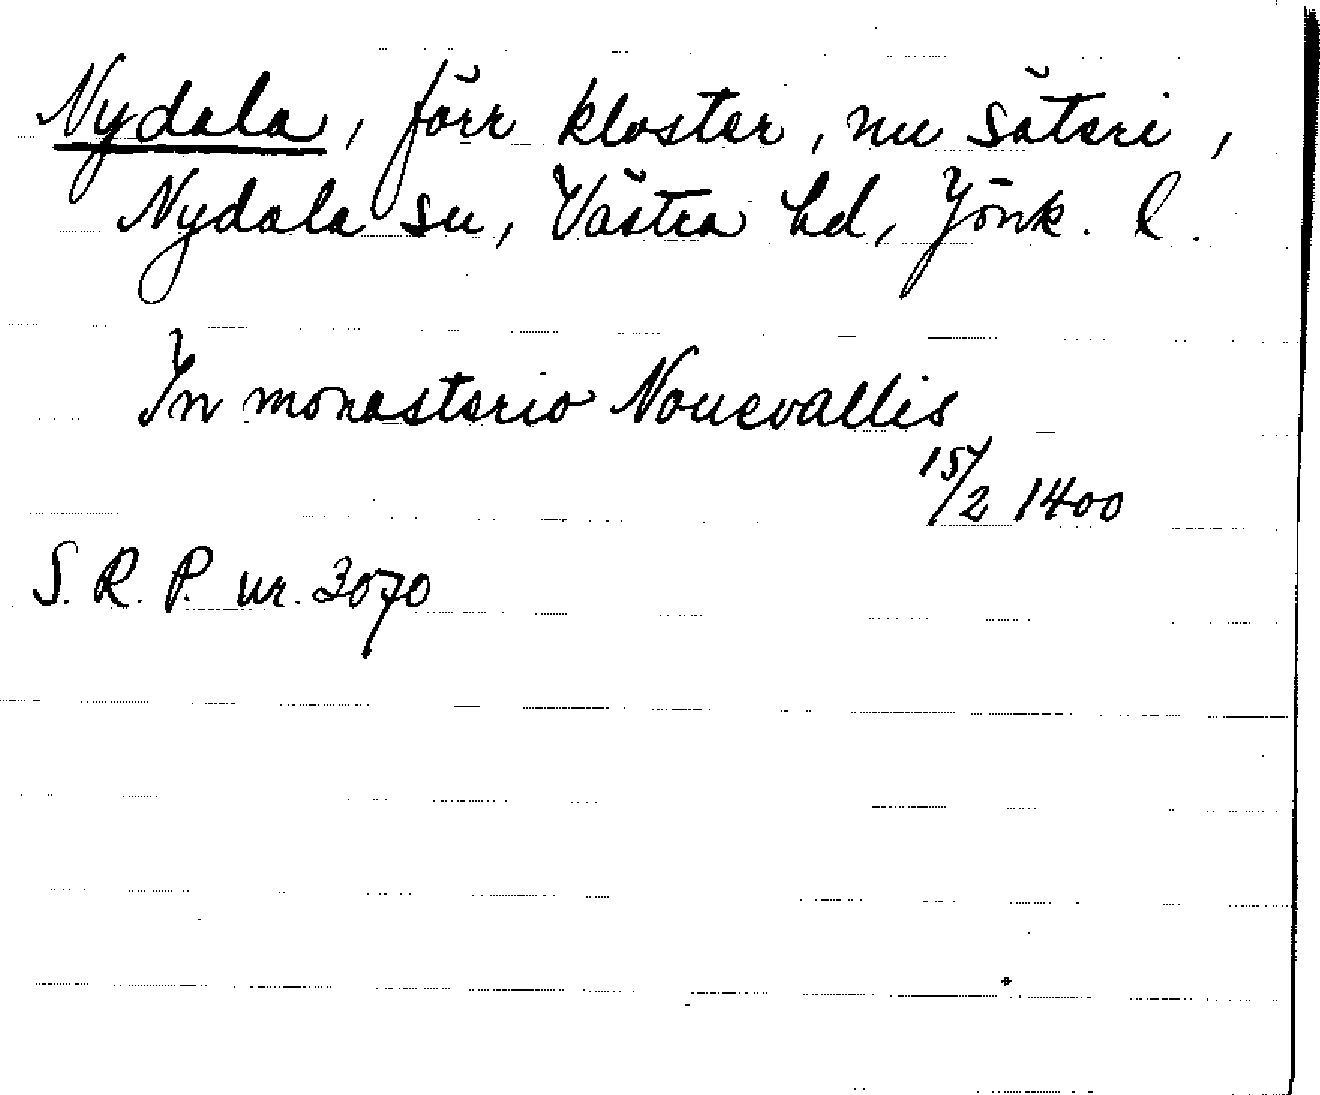 Nydala, förr kloster, nu säteri,
Nydala sn, Västra hd, Jönk. l.
In monasterio Nouevallis
15/2 1400
S. R. P. nr. 3070